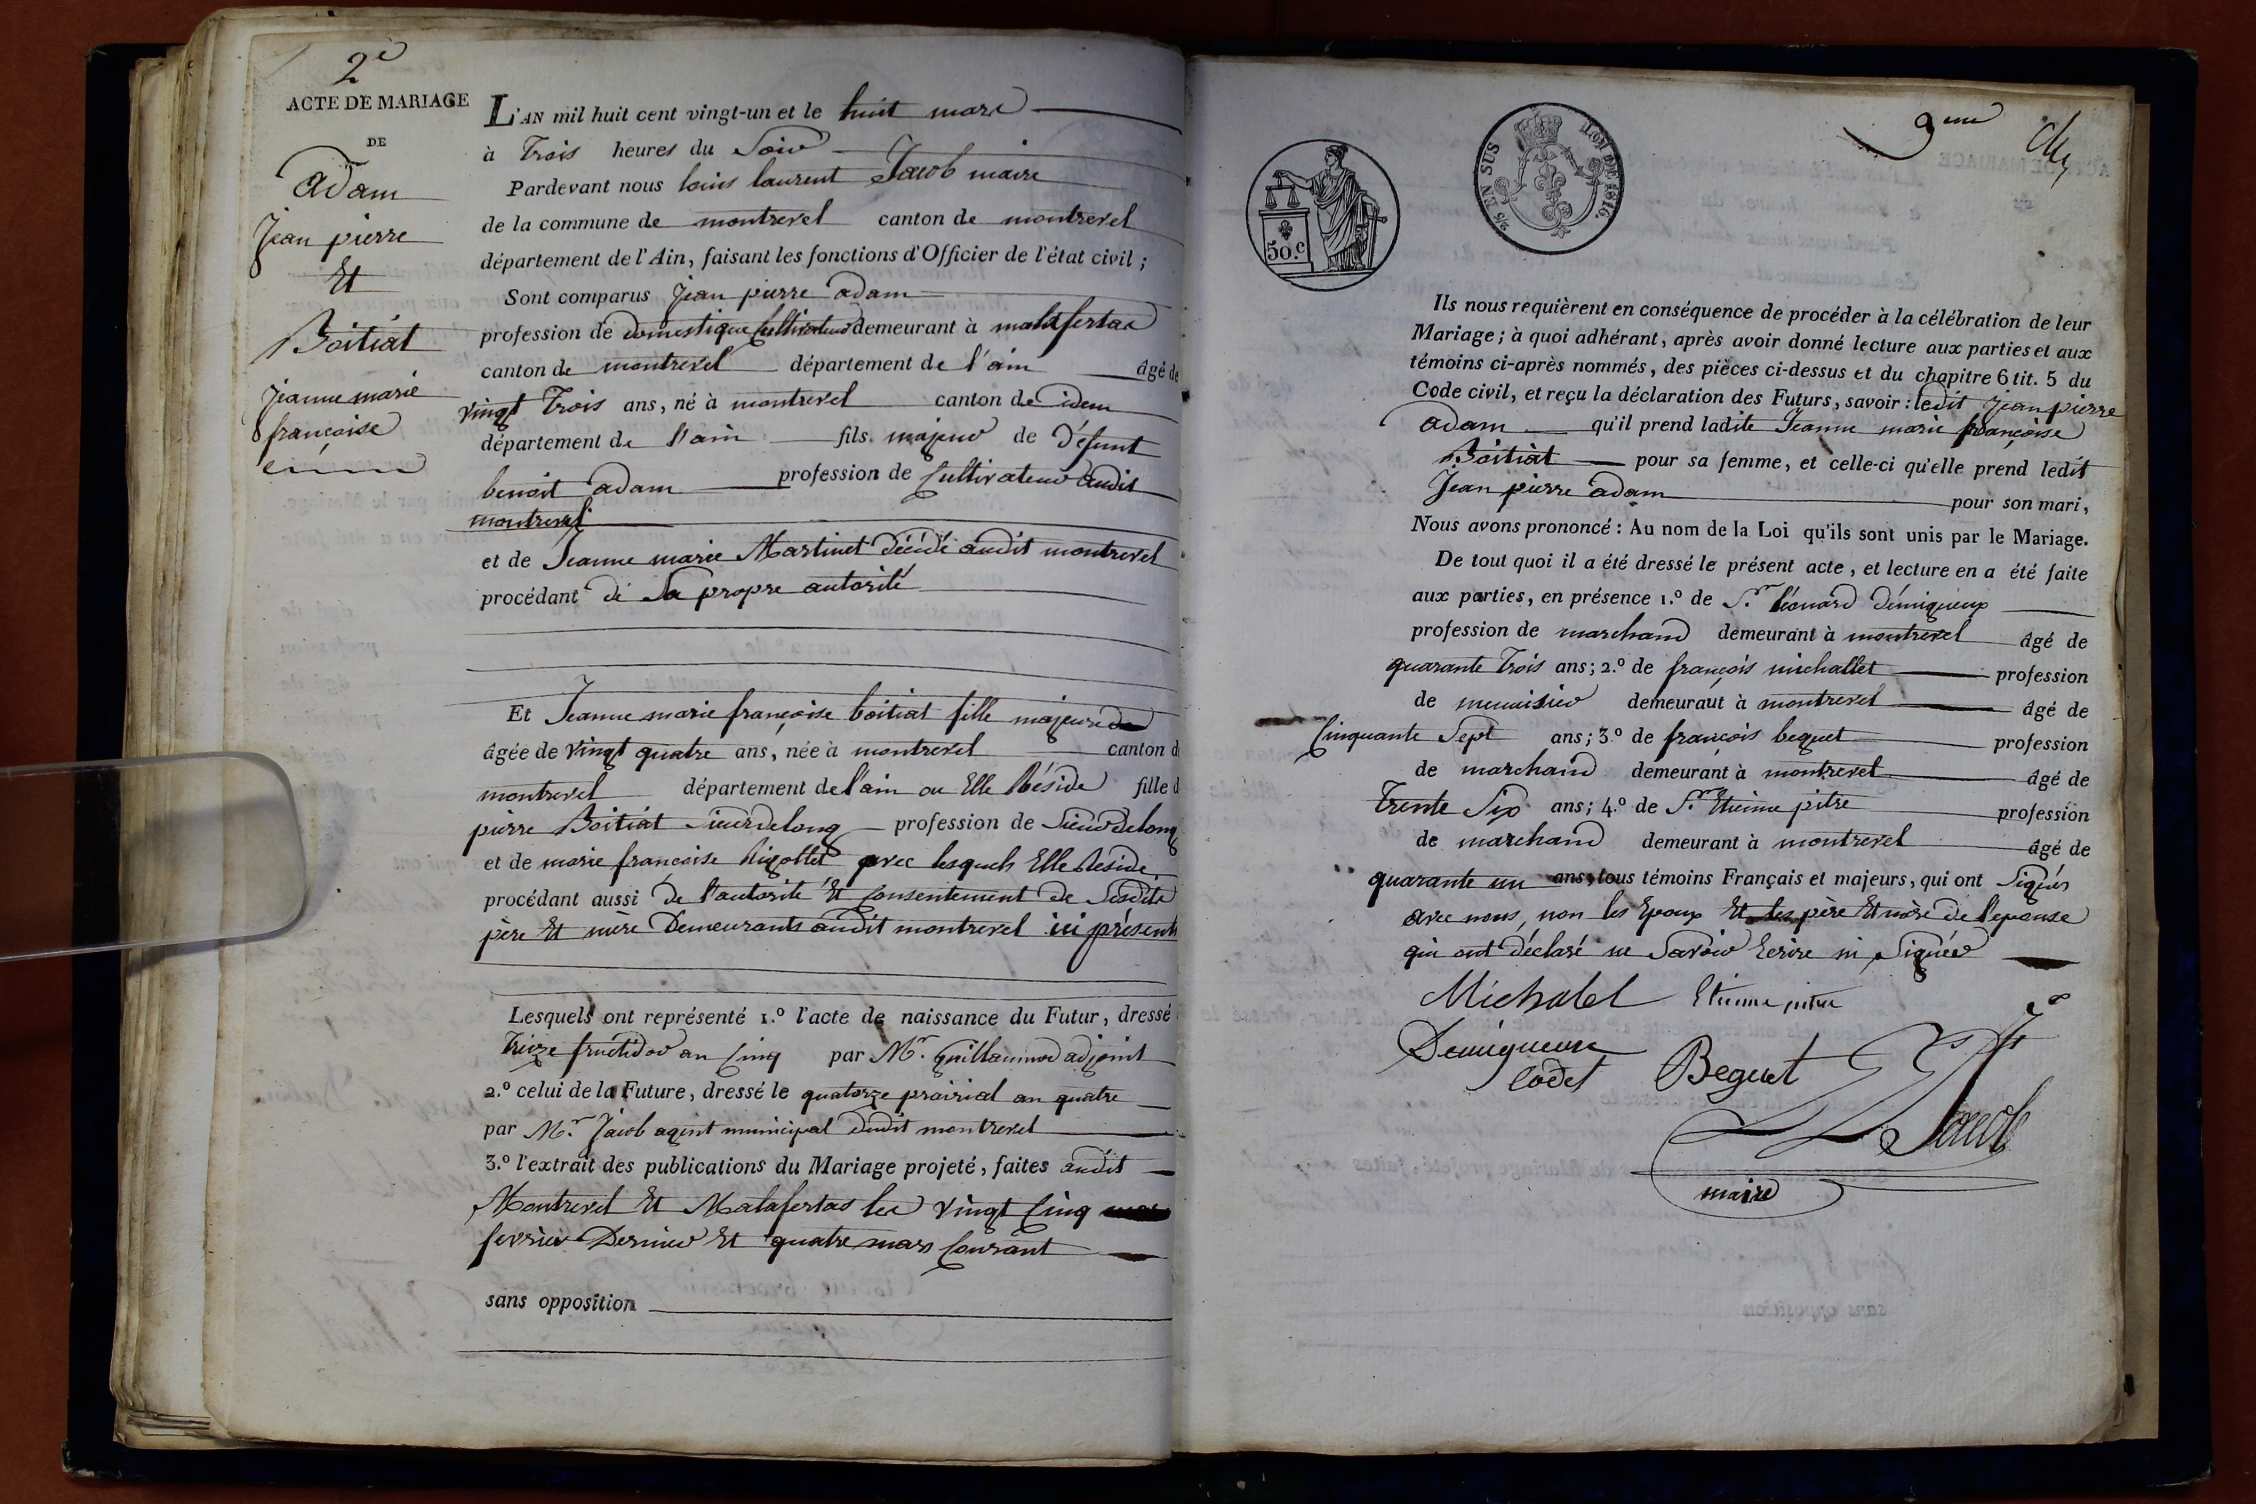 2e
ACTE DE MARIAGE
DE
Adam
Jean pierre
Et
Boitiat
Jeanne marie
françoise
L'AN mil huit cent vingt-un et le huit mars
à Trois heures du Soir
Pardevant nous louis laurent Jacob maire
de la commune de montrevel canton de montrevel
département de l'Ain, faisant les fonctions d'Officier de l'état civil ;
Sont comparus Jean pierre adam
profession de domestique Cultivateur demeurant à malafertas
canton de montrevel département de l'ain âgé de
vingt Trois ans, né à montrevel canton de idem
département de l'ain fils majeur de Défunt
benoit adam profession de Cultivateur audit
montrevel
et de Jeanne marie Martinet décédé audit montrevel
procédant de Sa propre autorité
Et Jeanne marie françoise boitiat fille majeure
âgée de vingt quatre ans, née à montrevel canton d
montrevel département de l'ain ou Elle Réside fille d
pierre Boitiat Sieurdelong profession de Sieurdelong
et de marie françoise Rigollet avec lesquels Elle Reside
procédant aussi de l'autorité Et Consentement de Sesdits
père Et mère Demeurants audit montrevel ici présents
Lesquels ont représenté 1.º l'acte de naissance du Futur, dressé
Treize fructidor an Cinq par Mr. Guillaumod adjoint
2.º celui de la Future, dressé le quatorze prairial an quatre
par Mr. Jacob agent municipal dudit montrevel
3.º l'extrait des publications du Mariage projeté, faites audit
Montrevel Et Malafertas les vingt Cinq
fevrier Dernier Et quatre mars Courant
sans opposition
9eme
50.c
2/5 EN SUS
LOI DE 1816.
Ils nous requièrent en conséquence de procéder à la célébration de leur
Mariage ; à quoi adhérant, après avoir donné lecture aux parties et aux
témoins ci-après nommés, des pièces ci-dessus et du chapitre 6 tit. 5 du
Code civil, et reçu la déclaration des Futurs, savoir : ledit Jean pierre
Adam qu'il prend ladite Jeanne marie françoise
Boitiat pour sa femme, et celle-ci qu'elle prend ledit
Jean pierre adam pour son mari,
Nous avons prononcé : Au nom de la Loi qu'ils sont unis par le Mariage.
De tout quoi il a été dressé le présent acte, et lecture en a été faite
aux parties, en présence 1.º de Sr. léonard démigueux
profession de marchand demeurant à montrevel âgé de
quarante Trois ans ; 2.º de françois michallet profession
de menuisier demeurant à montrevel âgé de
Cinquante Sept ans ; 3.º de françois beguet profession
de marchand demeurant à montrevel âgé de
Trente Six ans ; 4.º de Sr. Etienne pitre profession
de marchand demeurant à montrevel âgé de
quarante un ans, tous témoins Français et majeurs, qui ont Signés
avec nous, non les Epoux Et les père Et mère de l'epouse
qui ont déclaré ne Savoir Ecrire ni Signér
Michalel Etienne pitre
Demigueuxe
Cadet Beguet
Jacob
maire